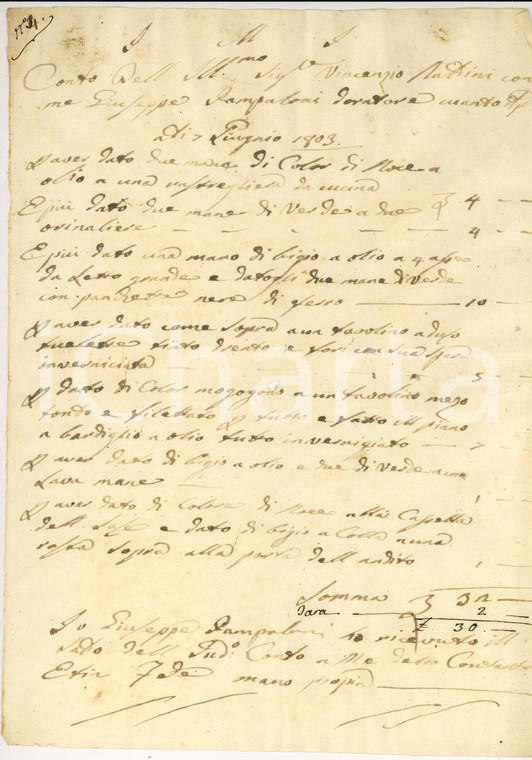 N.º 4.
Conto Dell Ill.mo Sig.re Vincenzio Rastini con
me Giuseppe Pampaloni doratore
adi 7 Giugnio 1803.
P aver dato due mane di Color di Noce a
olio a una rastregliera da cucina
4
E piu dato due mane di Verde a due
orinaliere 4
E piu dato una mano di bigio a olio a 4 asse
da Letto grande e datogli due mane di Verde
con panchette nere di ferro 10
P aver dato come Sopra a un tavolino aduso
tuelette tinto drento e fori con sua spera
inverniciata 5
P dato di Color mogogono a un tavolino mezo
tondo e filettato P tutto e fatto ill piano
a bardiglio a olio tutto invernigiato 7
P aver dato di bigio a olio e due di Verde a un
Lava mane 1
P aver dato di Colore di Noce alla Capetta
dell e dato di bigio a Colla a una
rosta sopra alla porta dell andito 1
Somma 32
tara 2
£ 30
Io Giuseppe Pampaloni o ricevuto ill
Saldo dell Sud.º Conto a Me detto Contanti
mano propria